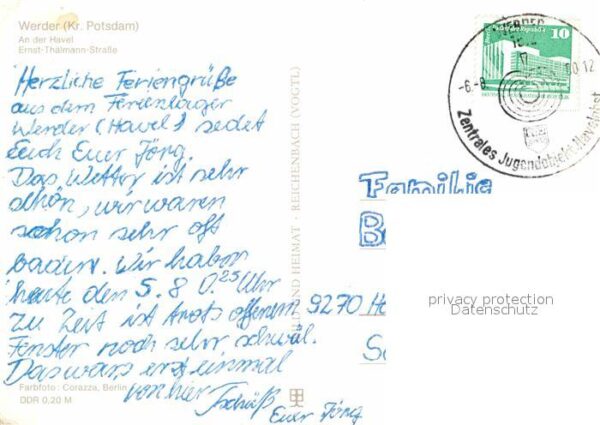 Werder (Kr. Potsdam)
An der Havel
Ernst-Thälmann-Straße
Herzliche Feriengrüße
aus dem Ferienlager
Werder (Havel) sedet
Euch Euer Jörg.
Das Wetter ist sehr
schön, wir waren
schon sehr oft
baden. Wir haben
heute den 5. 8 0.25 Uhr
Zu Zeit ist trots offenem
Fenster noch sehr schwül.
Das wars erst einmal
von hier Tschüß
Euer Jörg
Farbfoto: Corazza, Berlin
DDR 0,20 M
BILD UND HEIMAT · REICHENBACH (VOGTL)
10
WERDER
-6.-8
Zentrales Jugendobjekt Havelobst
Familie
9270
privacy protection
Datenschutz